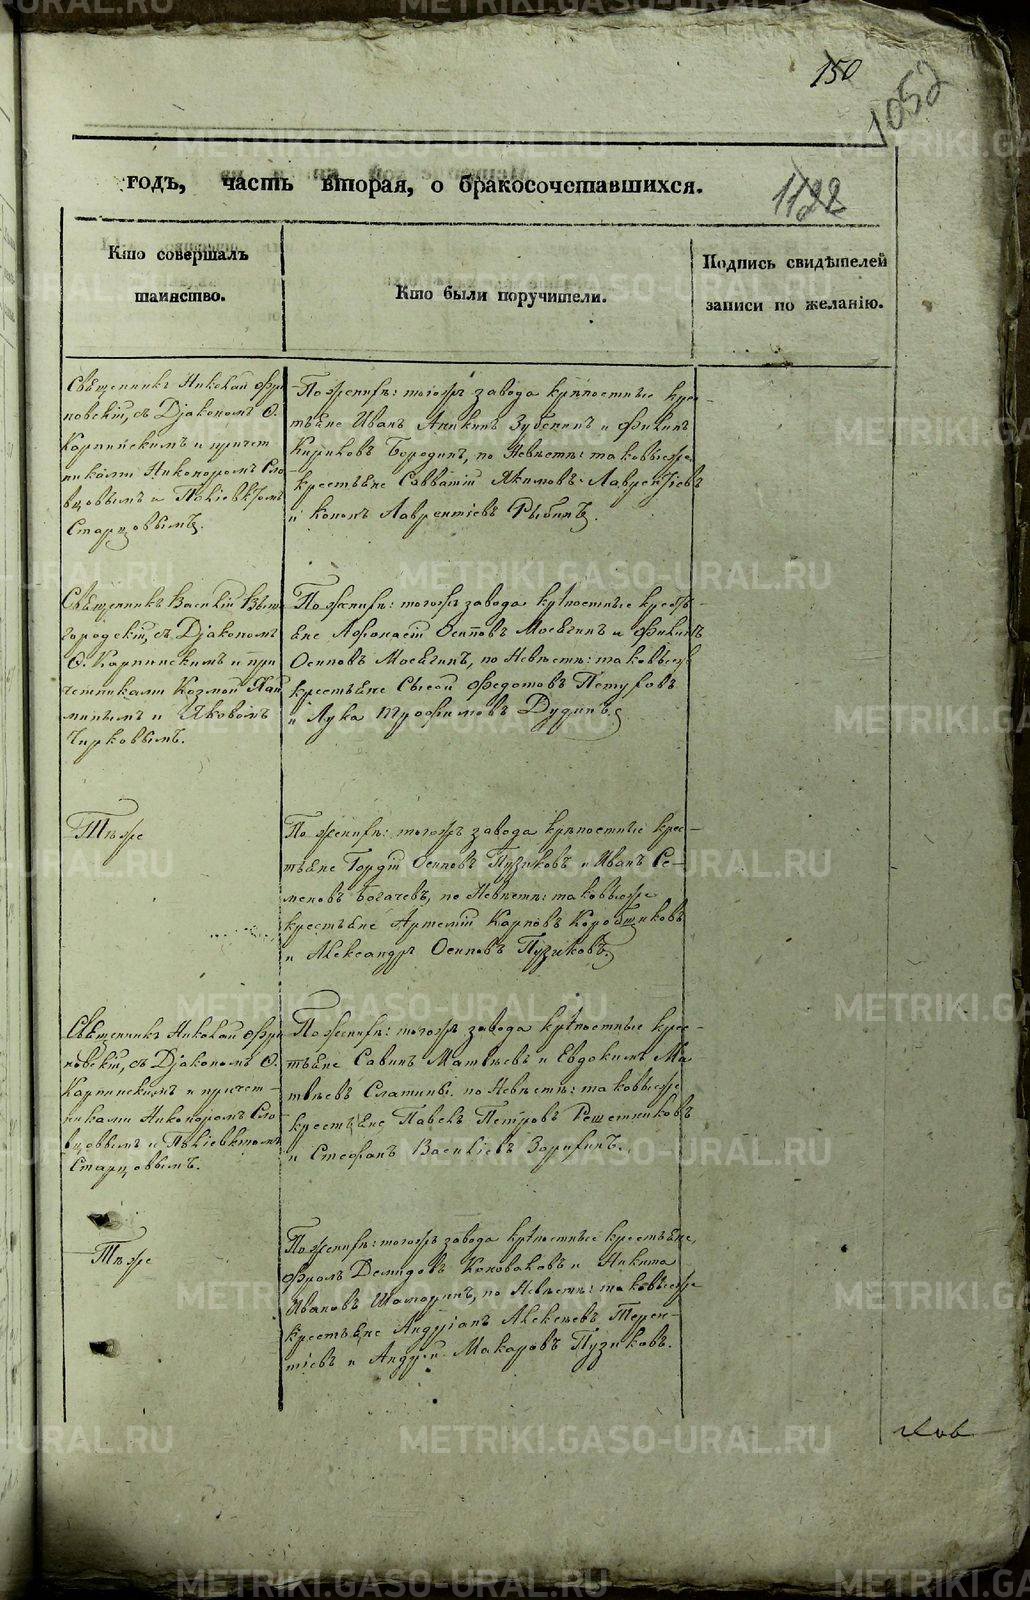 150
1052
годъ, часть вторая, о бракосочетавшихся.
1122
Кто совершалъ
таинство.
Кто были поручители.
Подпись свидѣтелей
записи по желанію.
Священникъ Николай
новскій, съ Діакономъ Ѳ.
Карпинскимъ и причет
никами Никаноромъ Сло
вцовымъ и
Старцовымъ.
По женихѣ: тогожъ завода крѣпостные крес-
тьяне Иванъ Аникинъ Зубенинъ и Филипъ
Кириковъ Бородинъ, по Невѣстѣ: таковыеже
крестьяне Савватій Якимовъ Лаврентьевъ
и Кононъ Лаврентіевъ Рыбинъ.
Священникъ Василій
городскій, съ Діакономъ
Ѳ. Карпинскимъ и при
четниками Козмой
и Яковомъ
Чирковымъ.
По женихѣ: тогожъ завода крѣпостные кресть-
яне Афонасій Осиповъ Мосягинъ и Филипъ
Осиповъ Мосягинъ, по Невѣстѣ: таковыеж
крестьяне Сысой Федотовъ Петуховъ
и Лука Трофимовъ Дудинъ.
Тѣже
По женихѣ: тогожъ завода крѣпостные крес-
тьяне Гордій Осиповъ Пузиковъ и Иванъ Се-
меновъ Богачевъ, по Невѣстѣ: таковыеже
крестьяне Артемій Карповъ Коробщиковъ
и Александръ Осиповъ Пузиковъ.
Священникъ Николай
новскій, съ Діакономъ Ѳ.
Карпинскимъ и причет-
никами Никаноромъ Сло
вцовымъ и
Старцовымъ.
По женихѣ: тогожъ завода крѣпостные крес-
тьяне Савинъ Матвѣевъ и Евдокимъ Ма
твѣевъ Слатины, по Невѣстѣ: таковыеже
крестьяне Павелъ Петровъ Решетниковъ
и Стефанъ Василіевъ Зорихинъ.
Тѣже
По женихѣ: тогожъ завода крѣпостные крестьяне,
Фролъ Демидовъ Коноваловъ и Никита
Ивановъ Шаморинъ, по Невѣстѣ: таковыеже
крестьяне Андріанъ Алексѣевъ Терен-
тіевъ и Андрей Макаровъ Пузиковъ.
METRIKI.GASO-URAL.RU